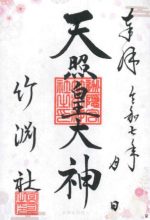 奉拝
令和七年
月 日
天照皇大神
竹渕社